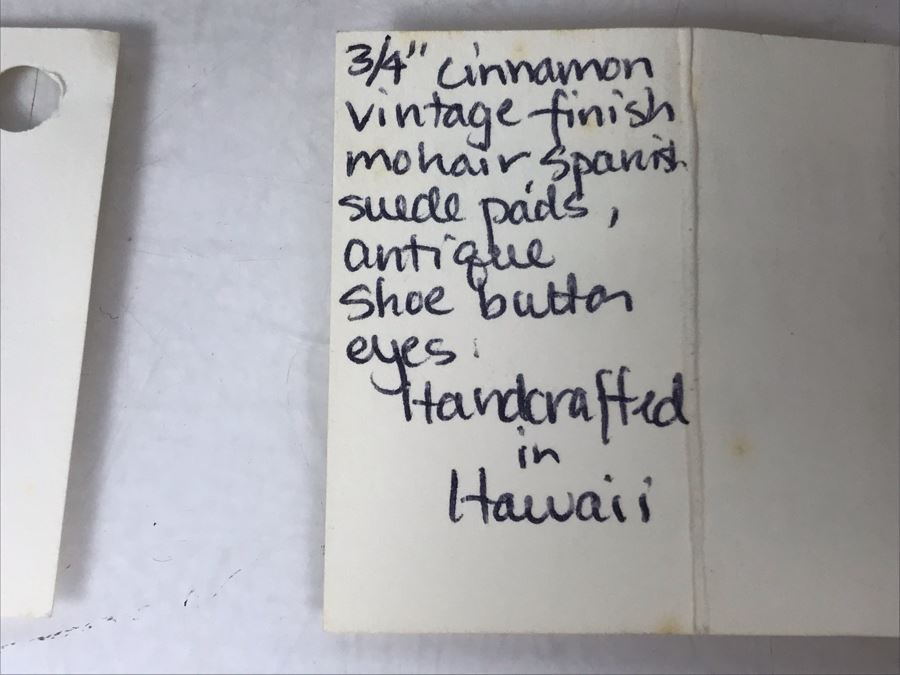 3/4" cinnamon
vintage finish
mohair, spanish
suede pads,
antique
shoe button
eyes.
Handcrafted
in
Hawaii